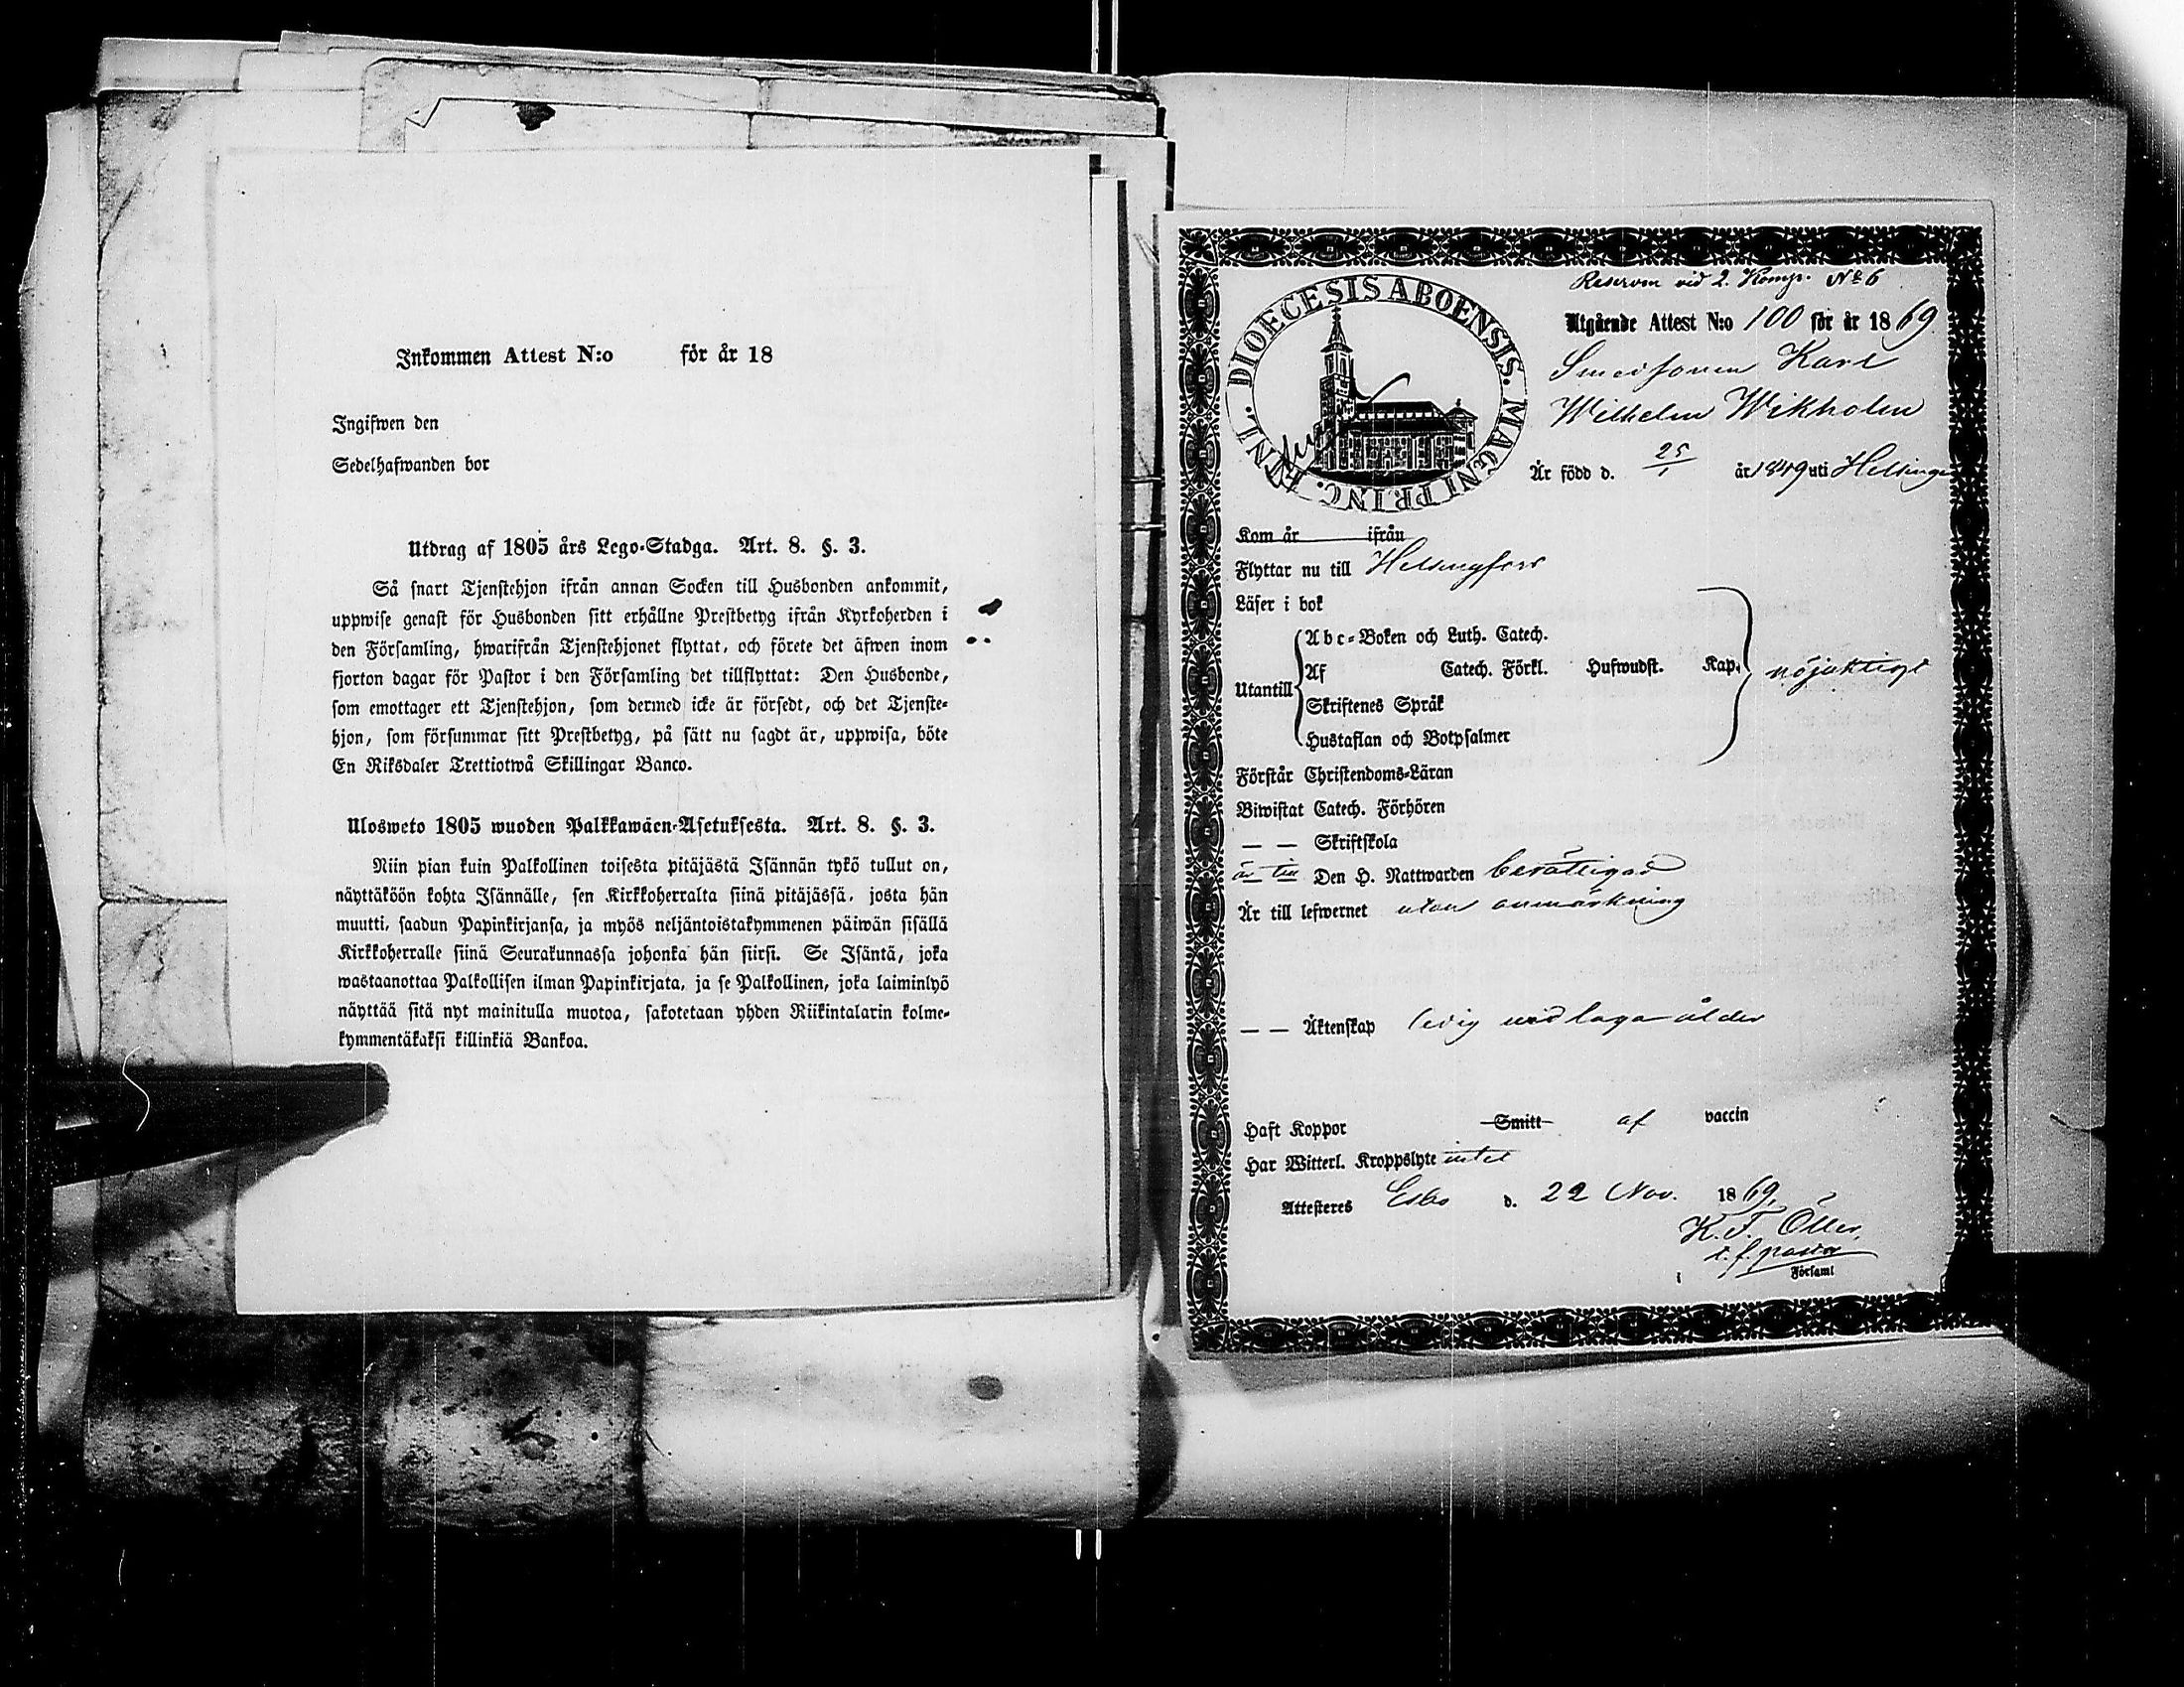 Inkommen Attest N:o för år 18
Ingifwen den
Sedelhafwanden bor
Utdrag af 1805 års Lego-Stadga. Art. 8. §. 3.
Så snart Tjenstehjon ifrån annan Socken till Husbonden ankommit,
uppwise genast för Husbonden sitt erhållne Prestbetyg ifrån Kyrkoherden i
den Församling, hwarifrån Tjenstehjonet flyttat, och förete det äfwen inom
fjorton dagar för Pastor i den Församling det tillflyttat: Den Husbonde,
som emottager ett Tjenstehjon, som dermed icke är försedt, och det Tjenste-
hjon, som försummar sitt Prestbetyg, på sätt nu sagdt är, uppwisa, böte
En Riksdaler Trettiotwå Skillingar Banco.
Ulosweto 1805 wuoden Palkkawäen-Asetuksesta. Art. 8. §. 3.
Niin pian kuin Palkollinen toisesta pitäjästä Isännän tykö tullut on,
näyttäköön kohta Isännälle, sen Kirkkoherralta siinä pitäjässä, josta hän
muutti, saadun Papinkirjansa, ja myös neljäntoistakymmenen päiwän sisällä
Kirkkoherralle siinä Seurakunnassa johonka hän siirsi. Se Isäntä, joka
wastaanottaa Palkollisen ilman Papinkirjata, ja se Palkollinen, joka laiminlyö
näyttää sitä nyt mainitulla muotoa, sakotetaan yhden Riikintalarin kolme-
kymmentäkaksi killinkiä Bankoa.
Reserven vid 2. Komp. No 6
DIOECESIS ABOENSIS. MAGNI PRINC. FINL.
Utgående Attest N:o 100 för år 1869
Smedsonen Karl
Wilhelm Wikholm
Är född d. 25/1 år 1849 uti Helsinge
Kom år ifrån
Flyttar nu till Helsingfors
Läser i bok
Utantill
Abc-Boken och Luth. Catech.
Af Catech. Förkl. Hufwudst. Kap. nöjaktigt
Skriftenes Språk
Hustaflan och Botpsalmer
Förstår Christendoms-Läran
Biwistat Catech. Förhören
— — Skriftskola
är till Den H. Nattwarden berättigad
Är till lefwernet utan anmärkning
— — Äktenskap ledig vid laga ålder
Haft Koppor Smitt af vaccin
Har Witterl. Kroppslyte intet
Attesteres Esbo d. 22 Nov. 1869,
K. F. Öller,
t. f. pastor
Församl